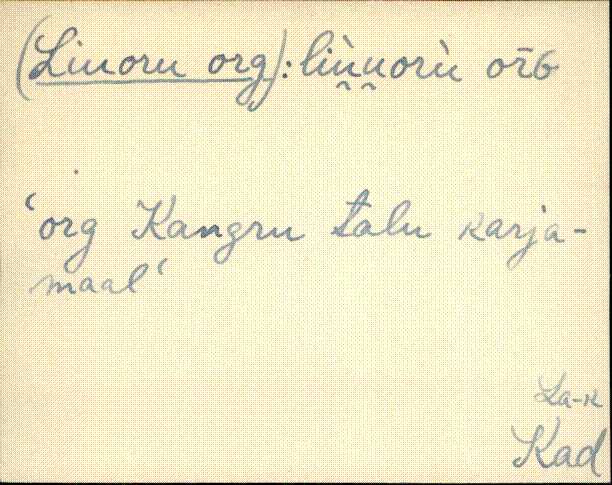 (Linoru org): liǹ̮n̮orù or̄G
‘org Kangru talu karja-
maal‘
La-k
Kad